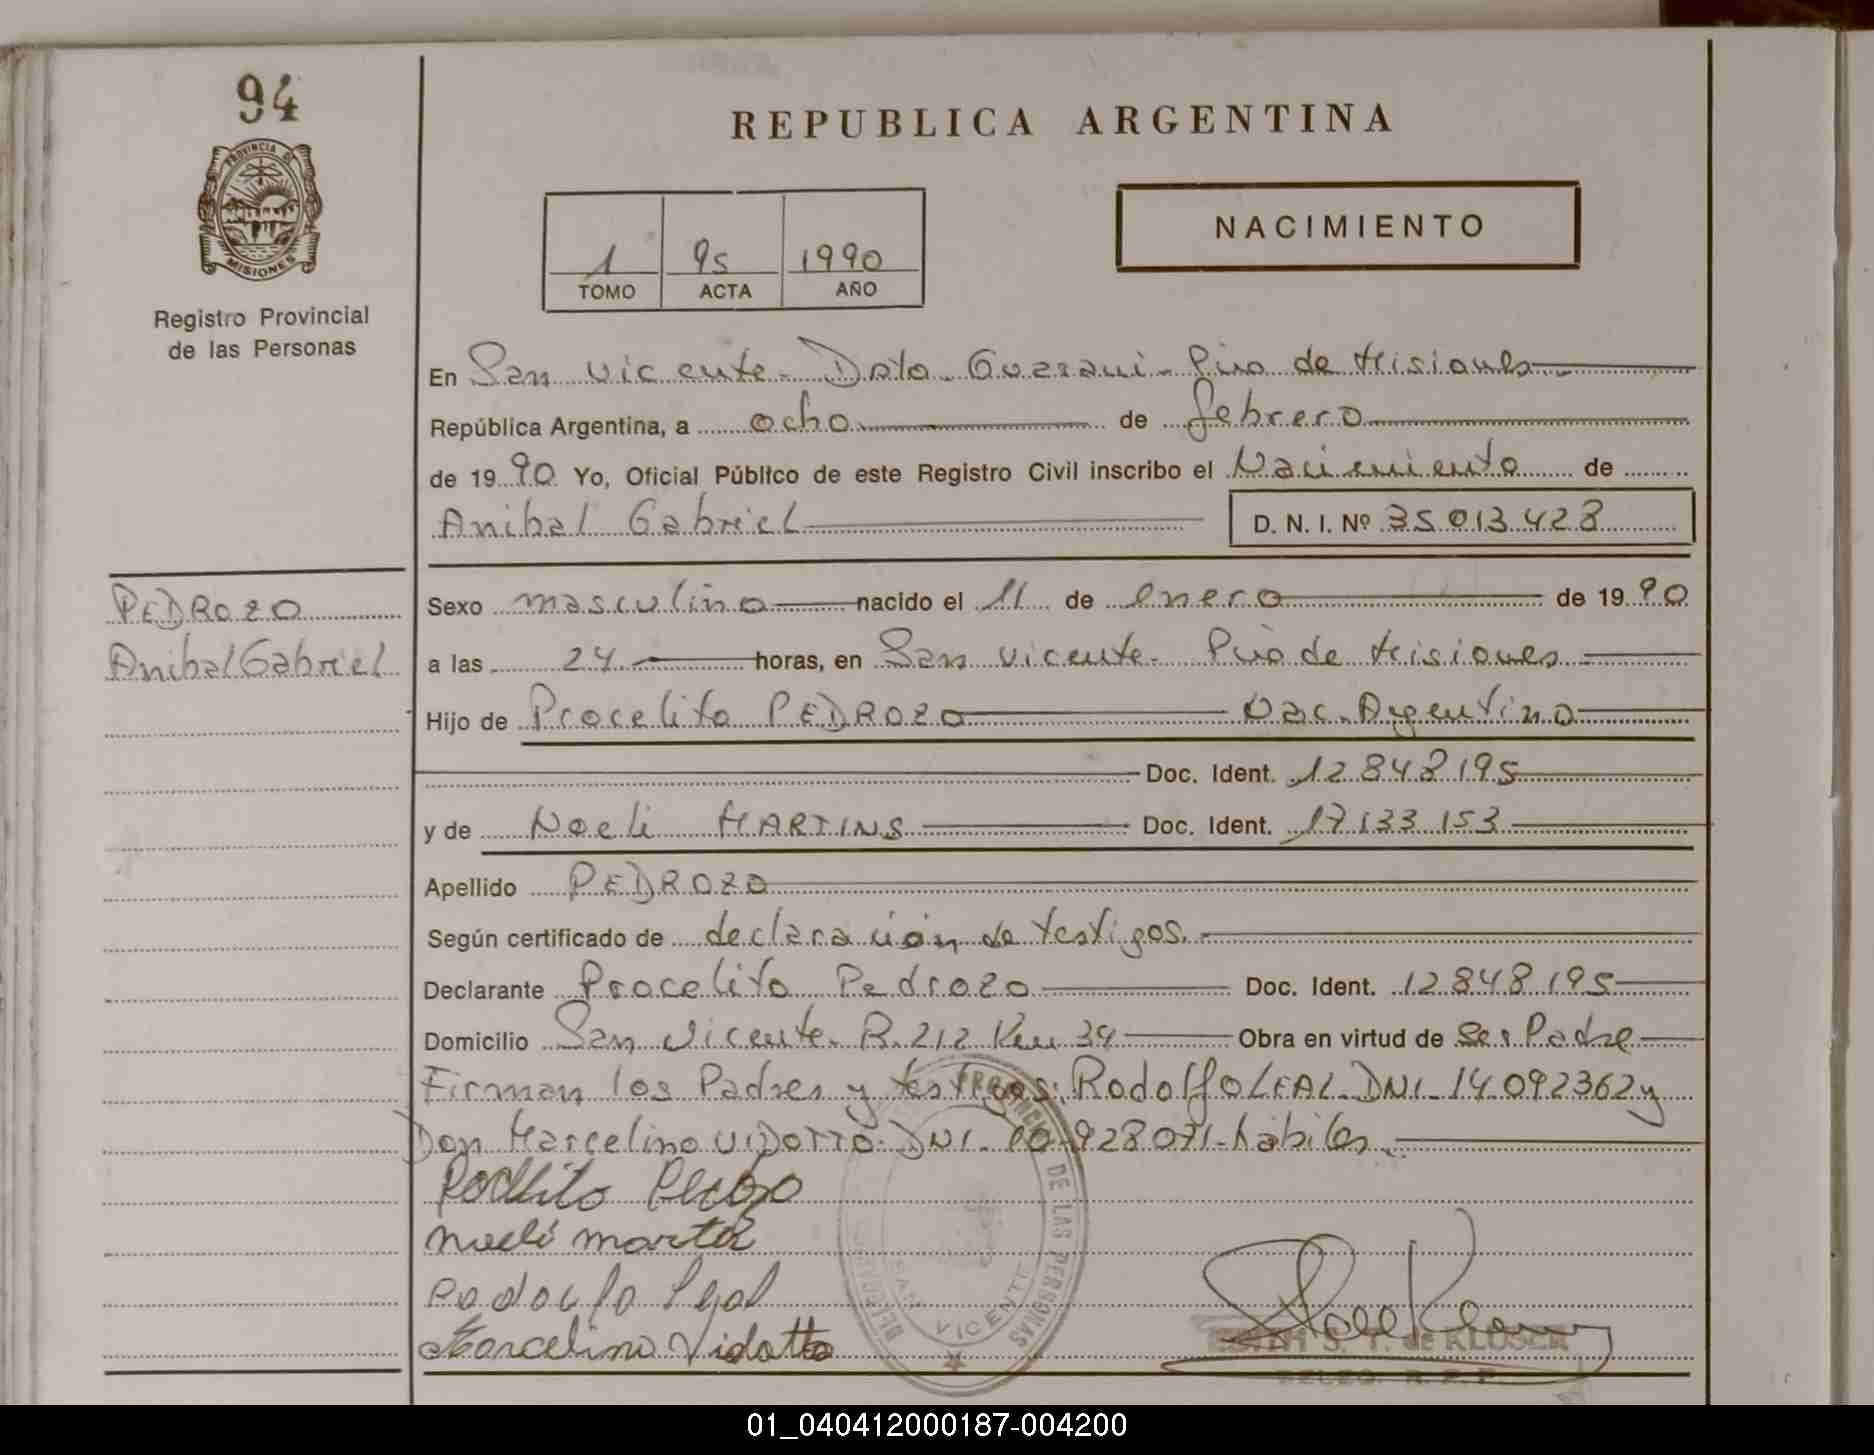 94
REPUBLICA ARGENTINA
PROVINCIA DE
MISIONES
Registro Provincial
de las Personas
1 95 1990
TOMO ACTA AÑO
NACIMIENTO
En San Vicente - Dpto. Guarani - Pcia de Misiones
República Argentina, a ocho de febrero
de 19 90 Yo, Oficial Público de este Registro Civil inscribo el Nacimiento de
Anibal Gabriel D. N. I. Nº 35 013 428
PEDROZO
Anibal Gabriel
Sexo masculino nacido el 11 de enero de 19 90
a las 24 horas, en San Vicente - Pcia de Misiones
Hijo de Procelito PEDROZO Nac. Argentino
Doc. Ident. 12 848 195
y de Noeli MARTINS Doc. Ident. 17 133 153
Apellido PEDROZO
Según certificado de declaración de testigos.
Declarante Procelito Pedrozo Doc. Ident. 12 848 195
Domicilio San Vicente. R. 212 Km 34 Obra en virtud de Ser Padre
Firman los Padres y testigos: Rodolfo LEAL - DNI - 14.092362 y
Don Marcelino VIDOTTO - DNI - 10-928 071 - hábiles
Marcelino Vidotto
DE LAS PERSONAS
SAN VICENTE
de KLUSER
01_040412000187-004200